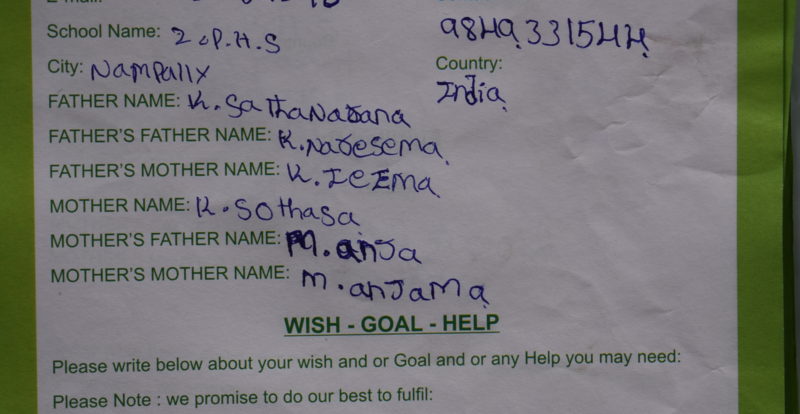 E-mail:
School Name: Z.P.H.S
9849331544
City: Nampally
Country:
India
FATHER NAME: K. SathaNaraNa
FATHER'S FATHER NAME: K. Naresema
FATHER'S MOTHER NAME: K. IcEma
MOTHER NAME: K. Sothasa
MOTHER'S FATHER NAME: M. anJa
MOTHER'S MOTHER NAME: M. anJama
WISH - GOAL - HELP
Please write below about your wish and or Goal and or any Help you may need:
Please Note : we promise to do our best to fulfil: